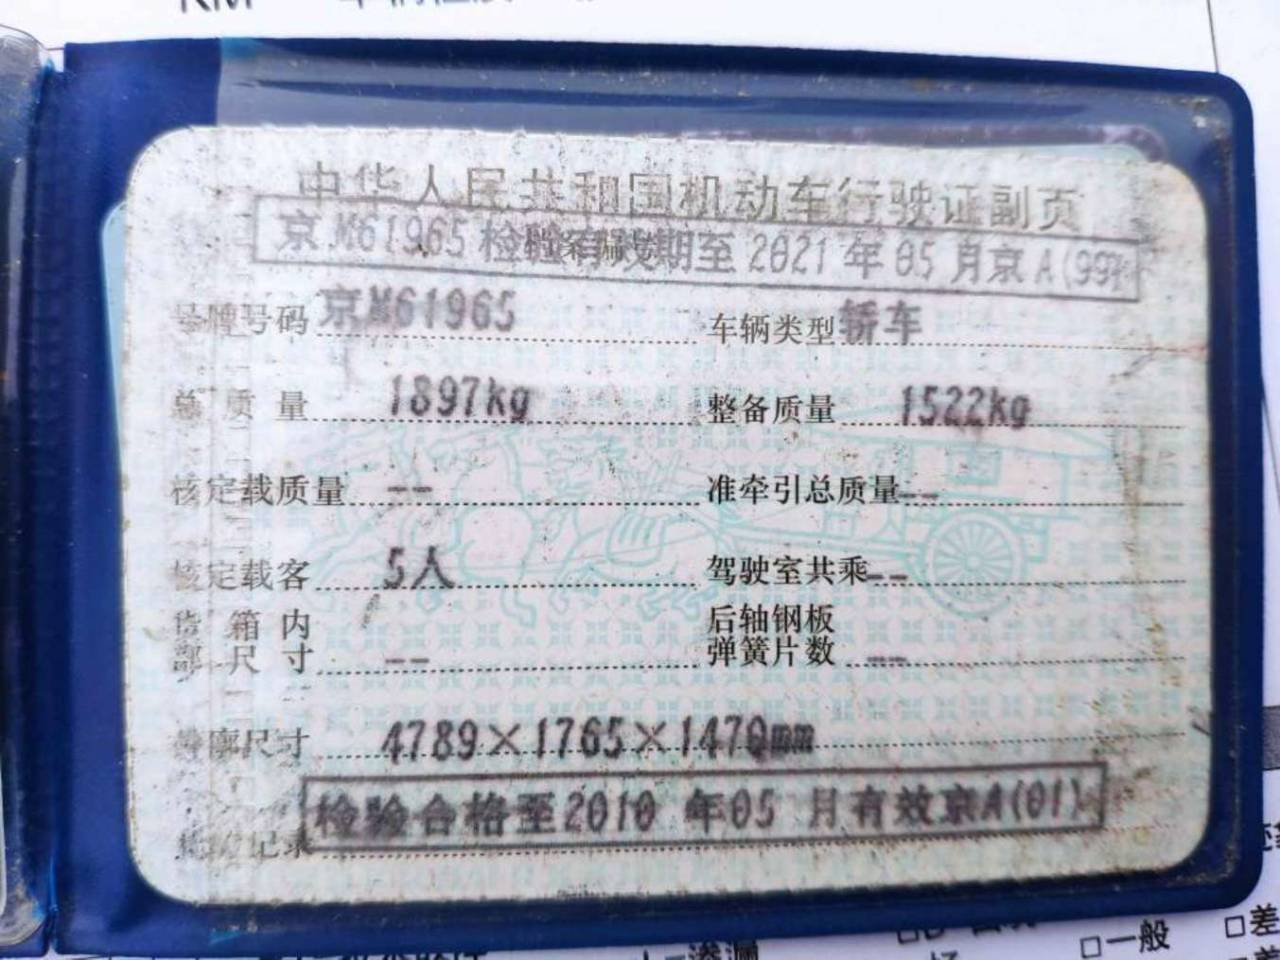 中华人民共和国机动车行驶证副页
京M61965检验有效期至2021年05月京A(99)
号牌号码 京M61965 车辆类型 轿车
总质量 1897kg 整备质量 1522kg
核定载质量 -- 准牵引总质量 --
核定载客 5人 驾驶室共乘 --
货箱内 后轴钢板
部尺寸 -- 弹簧片数 --
外廓尺寸 4789×1765×1470mm
检验合格至2010年05月有效京A(01)
检验记录
渗漏
□一般
□差